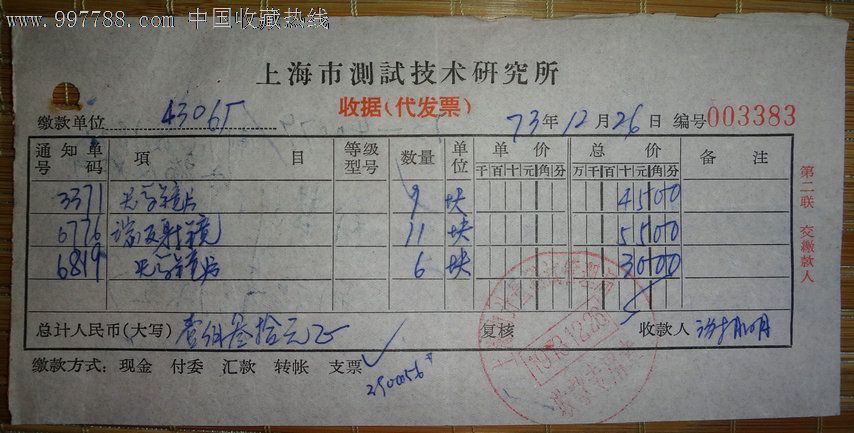 www.997788.com 中国收藏热线
上海市測試技术研究所
收据(代发票)
缴款单位 43065 73年12月26日 编号 003383
通知单号码 項目 等级型号 数量 单位 单价 总价 备注
千百十元角分 万千百十元角分
3371 光学镜片 9 块 4500
6776 端反射镜 11 块 5500
6819 光学镜片 6 块 3000
总计人民币(大写) 壹佰叁拾元正 复核 收款人
缴款方式: 现金 付委 汇款 转帐 支票 ✓
290056
第二联 交缴款人
1973.12.26